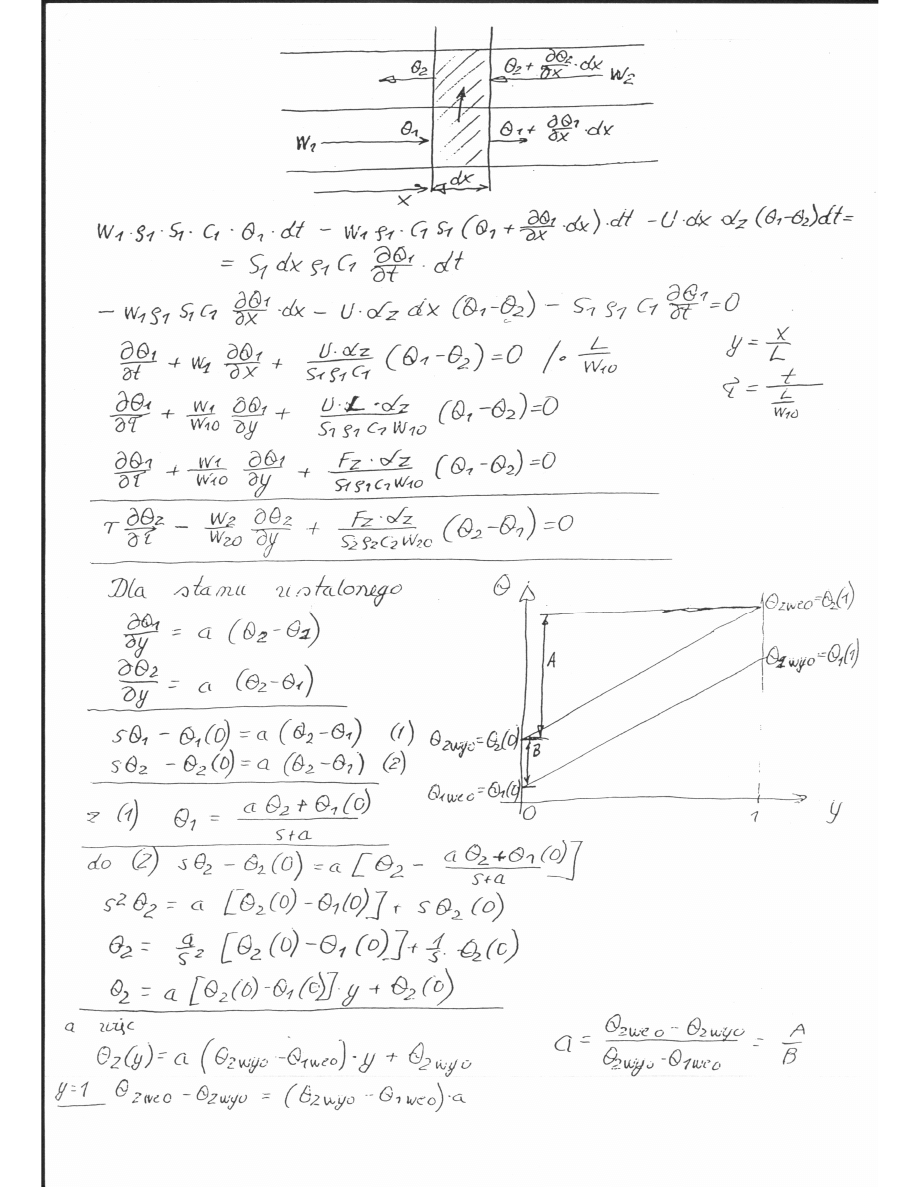 θ₂ θ₂ + ∂θ₂/∂x · dx
W₂
W₁ θ₁ θ₁ + ∂θ₁/∂x · dx
dx
x
W₁·ρ₁·S₁·C₁·θ₁·dt − W₁ρ₁·C₁S₁(θ₁ + ∂θ₁/∂x ·dx)·dt − U·dx α_z (θ₁−θ₂)dt=
= S₁ dx ρ₁ C₁ ∂θ₁/∂t · dt
− W₁ρ₁ S₁C₁ ∂θ₁/∂x ·dx − U·α_z dx (θ₁−θ₂) − S₁ρ₁C₁ ∂θ₁/∂t =0
∂θ₁/∂t + W₁ ∂θ₁/∂x + U·α_z/S₁ρ₁C₁ (θ₁−θ₂)=0 /· L/W₁₀
y = x/L
τ = t/(L/W₁₀)
∂θ₁/∂τ + W₁/W₁₀ ∂θ₁/∂y + U·L·α_z/S₁ρ₁C₁W₁₀ (θ₁−θ₂)=0
∂θ₁/∂τ + W₁/W₁₀ ∂θ₁/∂y + F_z·α_z/S₁ρ₁C₁W₁₀ (θ₁−θ₂)=0
T ∂θ₂/∂τ − W₂/W₂₀ ∂θ₂/∂y + F_z·α_z/S₂ρ₂C₂W₂₀ (θ₂−θ₁)=0
Dla stanu ustalonego
∂θ₁/∂y = a (θ₂−θ₁)
∂θ₂/∂y = a (θ₂−θ₁)
sθ₁ − θ₁(0) = a (θ₂−θ₁) (1)
sθ₂ − θ₂(0) = a (θ₂−θ₁) (2)
θ
θ₂we0=θ₂(1)
θ₁wy0=θ₁(1)
A
θ₂wy0=θ₂(0)
B
θ₁we0=θ₁(0)
0 1 y
z (1) θ₁ = aθ₂+θ₁(0)/s+a
do (2) sθ₂ − θ₂(0) = a [θ₂ − aθ₂+θ₁(0)/s+a]
s²θ₂ = a [θ₂(0)−θ₁(0)] + sθ₂(0)
θ₂ = a/s² [θ₂(0)−θ₁(0)] + 1/s · θ₂(0)
θ₂ = a [θ₂(0)−θ₁(0)]·y + θ₂(0)
a więc
θ₂(y) = a (θ₂wy0−θ₁we0)·y + θ₂wy0
a = θ₂we0−θ₂wy0/θ₂wy0−θ₁we0 = A/B
y=1 θ₂we0−θ₂wy0 = (θ₂wy0−θ₁we0)·a